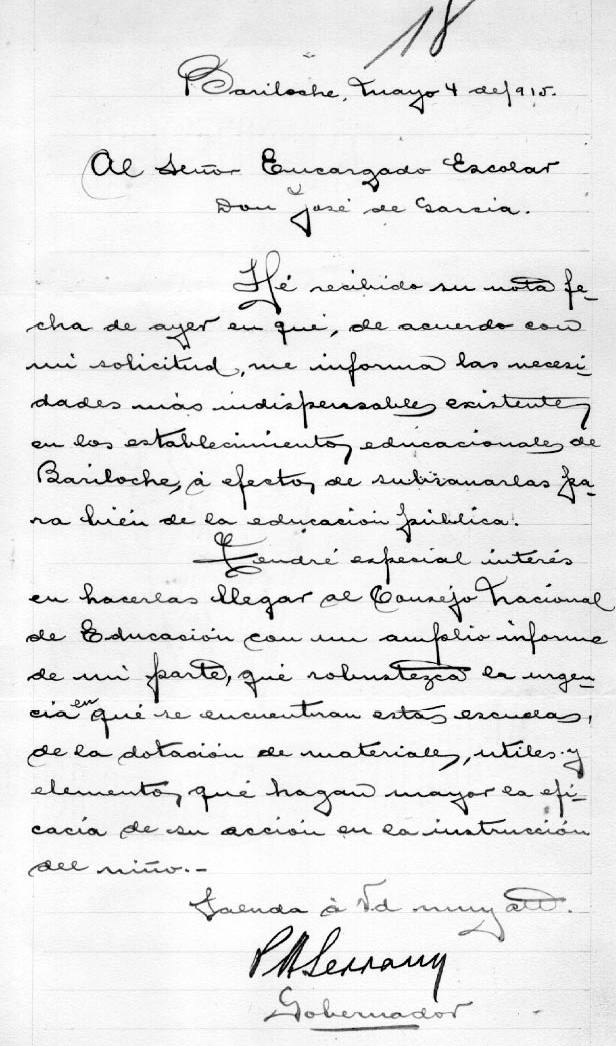 18
Bariloche, Mayo 4 de 1915.
Al Señor Encargado Escolar
Don José de García.
Hé recibido su nota fe-
cha de ayer en qué, de acuerdo con
mi solicitud, me informa las necesi-
dades más indispensables existentes
en los establecimientos educacionales de
Bariloche, á efectos de subsanarlas pa-
ra bién de la educación pública.
Tendré especial interés
en hacerlas llegar al Consejo Nacional
de Educación con un amplio informe
de mi parte, qué robustezca la urgen-
cia en qué se encuentran estas escuelas,
de la dotación de materiales, utiles y
elementos, qué hagan mayor la efi-
cacia de su acción en la instrucción
del niño.-
Saluda á Vd muy att.
P A Serrany
Gobernador